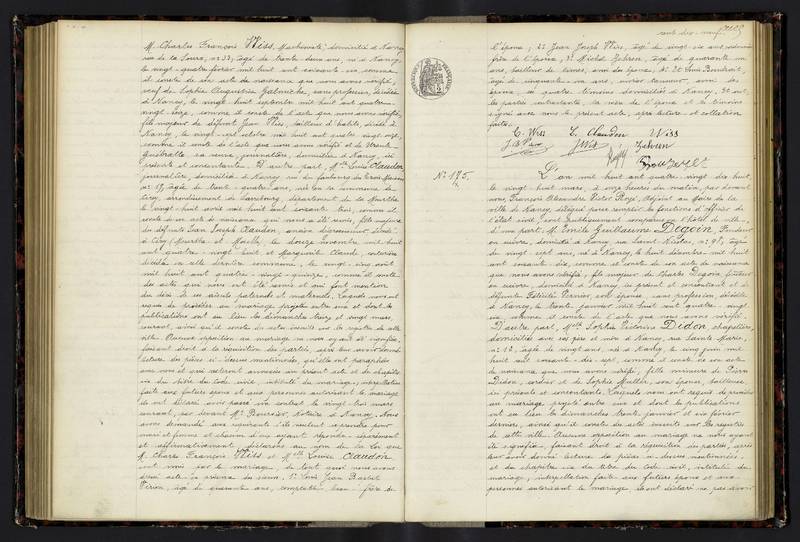 M. Charles François Wiss, Machiniste, domicilié à Nancy
rue de la Loire, n° 33, âgé de trente-deux ans, né à Nancy
le vingt-quatre février mil huit cent soixante-six, comme
il conste de son acte de naissance que nous avons vérifié,
veuf de Sophie Augustine Galmiche, sans profession, décédée
à Nancy, le vingt-huit septembre mil huit cent quatre-
vingt-seize, comme il conste de l'acte que nous avons vérifié,
fils majeur de défunt Jean Wiss, tailleur d'habits, décédé à
Nancy, le vingt-sept octobre mil huit cent quatre-vingt
comme il conste de l'acte que nous avons vérifié et de
sa veuve, journalière, domiciliée à Nancy, ici
présente et consentante. D'autre part, Melle Louise Claudon
journalière, domiciliée à Nancy rue du faubourg des Trois Maisons
n° âgée de trente-quatre ans, née en la commune de
Cirey, arrondissement de Sarrebourg, département de la Meurthe
le vingt-huit avril mil huit cent soixante-trois, comme il
conste de son acte de naissance qui nous a été remis, fille majeure
de défunts Jean Joseph Claudon, décédé
à Cirey (Meurthe et Moselle), le douze novembre mil huit
cent quatre-vingt-huit et Marguerite Claude,
décédée en cette dernière commune, le vingt-cinq août
mil huit cent quatre-vingt-quinze, comme il conste
des actes qui nous ont été remis et qui font mention
du décès de ses aïeuls paternels et maternels. Lesquels nous ont
requis de procéder au mariage projeté entre eux et dont les
publications ont eu lieu les dimanches treize et vingt mars
courant, ainsi qu'il conste des actes inscrits sur les registres de cette
ville. Aucune opposition au mariage ne nous ayant été signifiée,
faisant droit à la réquisition des parties, après leur avoir donné
lecture des pièces ci-dessus mentionnées, qu'elles ont paraphées
avec nous et qui resteront annexées au présent acte et du chapitre
six du titre du Code civil, intitulé du mariage, interpellation
faite aux futurs époux et aux personnes autorisant le mariage
ils ont déclaré avoir passé un contrat le vingt-trois mars
courant, par devant Me Boursier, Notaire à Nancy. Nous
avons demandé aux requérants s'ils veulent se prendre pour
mari et femme et chacun d'eux ayant répondu séparément
et affirmativement, déclarons au nom de la Loi que
M. Charles François Wiss et Melle Louise Claudon
sont unis par le mariage, de tout quoi nous avons
dressé acte en présence des sieurs, 1° Louis Jean Barbet
âgé de quarante ans, comptable, beau-frère de
cent dix-neuf
l'épouse, 2° Jean Joseph Wiss, âgé de vingt-six ans
frère de l'époux, 3° Michel Zehren, âgé de quarante
ans, tailleur de limes, ami de l'époux, 4° et
âgé de cinquante ans, ouvrier ami des
époux, ces quatre témoins domiciliés à Nancy. Et ont,
les parties contractantes, la mère de l'époux et les témoins
signé avec nous le présent acte, après lecture et collation
faites.
C. Wiss L. Claudon Wiss
J. Wiss Zehren
N° 175.
L'an mil huit cent quatre-vingt-dix-huit,
le vingt-huit mars, à onze heures du matin, par devant
nous, François Alexandre Victor Rogé, Adjoint au Maire de la
ville de Nancy, délégué pour remplir les fonctions d'officier de
l'état civil, sont publiquement comparus en l'hôtel de ville,
d'une part, M. Emile Guillaume Degoin, Fondeur
en cuivre, domicilié à Nancy, rue Saint-Nicolas, n° 98, âgé
de vingt-sept ans, né à Nancy, le huit décembre mil huit
cent soixante-dix, comme il conste de son acte de naissance
que nous avons vérifié, fils majeur de Charles Degoin, fondeur
en cuivre, domicilié à Nancy, ici présent et consentant et de
défunte Félicité Vernier, son épouse, sans profession, décédée
à Nancy, le trente janvier mil huit cent quatre-vingt-
six, comme il conste de l'acte que nous avons vérifié.
D'autre part, Melle Sophie Victorine Didon, chapelière,
domiciliée avec ses père et mère à Nancy, rue Sainte Marie,
n° 12, âgée de vingt ans, née à Nancy, le cinq juin mil
huit cent soixante-dix-sept, comme il conste de son acte
de naissance que nous avons vérifié, fille mineure de Pierre
Didon, cordier et de Sophie Muller, son épouse, tailleuse,
ici présents et consentants. Lesquels nous ont requis de procéder
au mariage projeté entre eux et dont les publications
ont eu lieu les dimanches trente janvier et six février
derniers, ainsi qu'il conste des actes inscrits sur les registres
de cette ville. Aucune opposition au mariage ne nous ayant
été signifiée, faisant droit à la réquisition des parties, après
leur avoir donné lecture des pièces ci-dessus mentionnées
et du chapitre six du titre du Code civil, intitulé du
mariage, interpellation faite aux futurs époux et aux
personnes autorisant le mariage, ils ont déclaré ne pas avoir